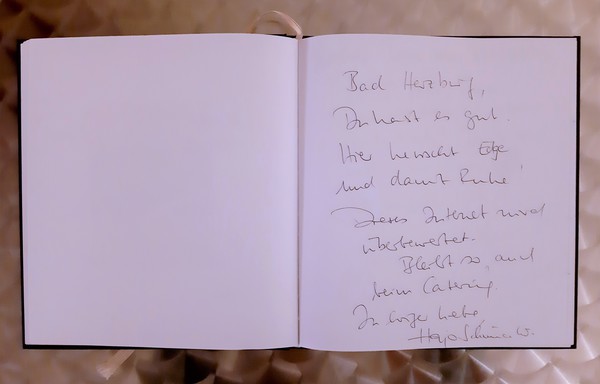 Bad Harzburg,
Du hast es gut.
Hier herrscht Edge
und damit Ruhe!
Dieses Internet wird
überbewertet.
Bleibt so, auch
beim Catering.
In ewiger Liebe,
Hajo